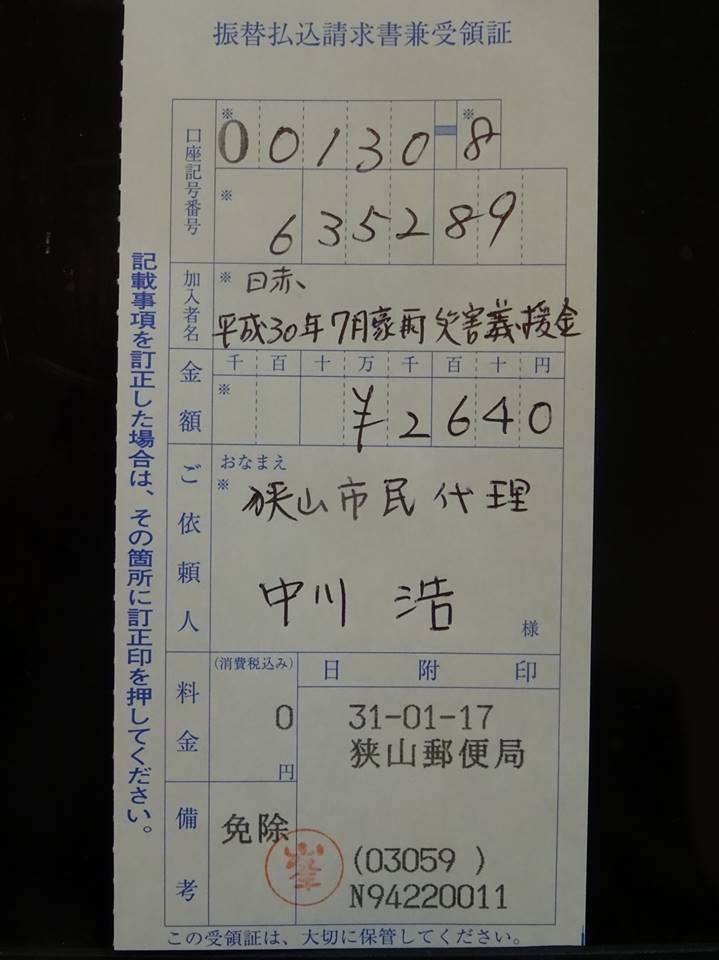 振替払込請求書兼受領証
口座記号番号
※ ※
00130-8
※
635289
加入者名
※ 日赤、
平成30年7月豪雨災害義援金
金額
千百十万千百十円
※
¥2640
ご依頼人
おなまえ
※
狭山市民代理
中川 浩
様
料金
(消費税込み)
0
円
日附印
31-01-17
狭山郵便局
備考
免除
峯
(03059 )
N94220011
この受領証は、大切に保管してください。
記載事項を訂正した場合は、その箇所に訂正印を押してください。